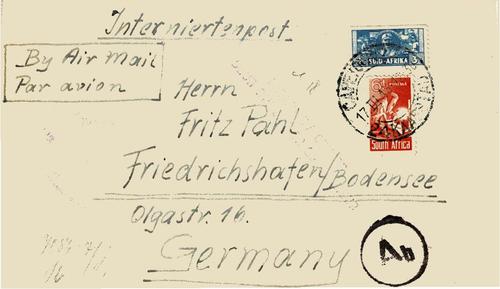 Interniertenpost
By Air Mail
Par avion
Herrn
Fritz Pahl
Friedrichshafen/Bodensee
Olgastr. 16.
Germany
SUID-AFRIKA
South Africa
Ab